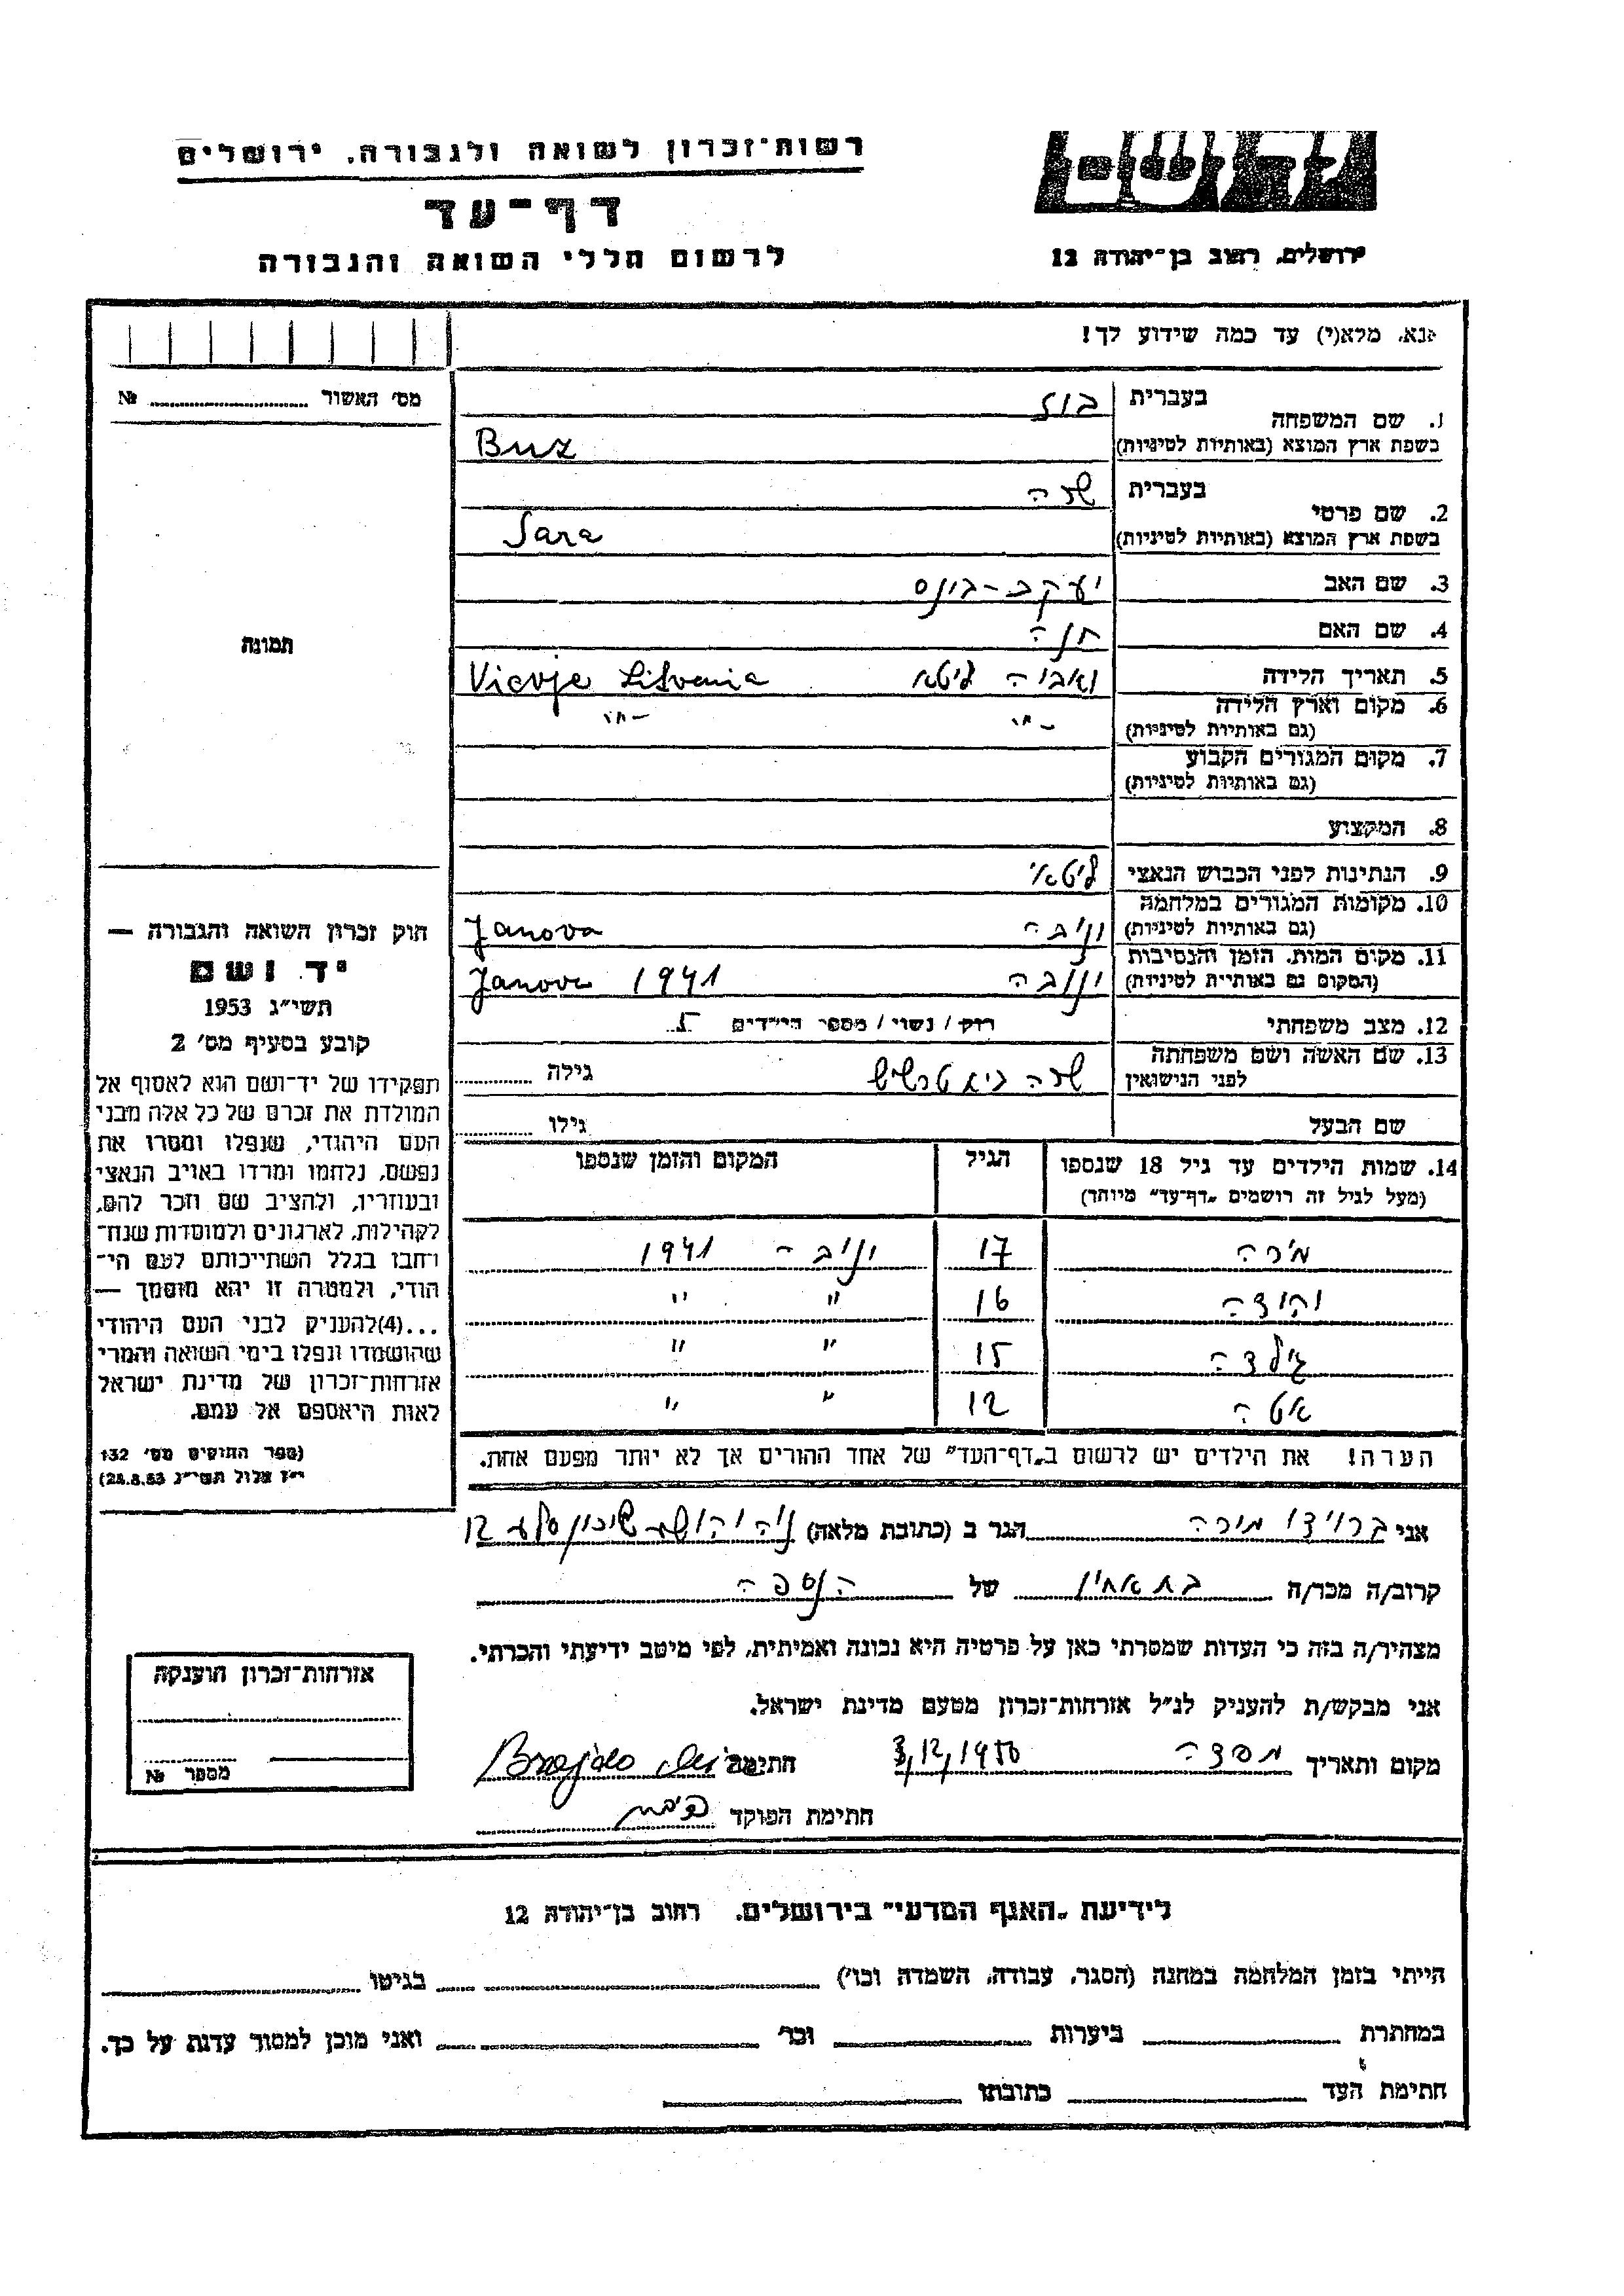 רשות־זכרון לשואה ולגבורה, ירושלים
דף־עד
לרשום חללי השואה והגבורה
ירושלים, רחוב בן־יהודה 12
אנא, מלא(י) עד כמה שידוע לך!
מס' האשור № 
1. שם המשפחה
בעברית בוז
בשפת ארץ המוצא (באותיות לטיניות) Buz
2. שם פרטי
בעברית שרה
בשפת ארץ המוצא (באותיות לטיניות) Sara
3. שם האב יעקב-
4. שם האם חנה
5. תאריך הלידה ליטא
6. מקום וארץ הלידה
(גם באותיות לטיניות) -"- -"-
7. מקום המגורים הקבוע
(גם באותיות לטיניות)
8. המקצוע
9. הנתינות לפני הכבוש הנאצי ליטאי
10. מקומות המגורים במלחמה
(גם באותיות לטיניות) Janova
11. מקום המות, הזמן והנסיבות
(המקום גם באותיות לטיניות) ינובה Janova 1941
12. מצב משפחתי רוק / נשוי / מספר הילדים 5
13. שם האשה ושם משפחתה
לפני הנישואין שרה גילה
שם הבעל גילו
תמונה
חוק זכרון השואה והגבורה —
יד ושם
תשי״ג 1953
קובע בסעיף מס' 2
תפקידו של יד־ושם הוא לאסוף אל
המולדת את זכרם של כל אלה מבני
העם היהודי, שנפלו ומסרו את
נפשם, נלחמו ומרדו באויב הנאצי
ובעוזריו, ולהציב שם וזכר להם,
לקהילות, לארגונים ולמוסדות שנח־
רחבו בגלל השתייכותם לעם הי־
הודי, ולמטרה זו יהא מוסמך —
...(4)להעניק לבני העם היהודי
שהושמדו ונפלו בימי השואה והמרי
אזרחות־זכרון של מדינת ישראל
לאות היאספם אל עמם.
(ספר החוקים מס' 132
י״ז אלול תשי״ג 28.8.53)
14. שמות הילדים עד גיל 18 שנספו הגיל המקום והזמן שנספו
(מעל לגיל זה רושמים „דף־עד" מיוחד)
מירה 17 1941
יהודה 16 " "
15 " "
אטה 12 " "
הערה! את הילדים יש לרשום ב„דף־העד" של אחד ההורים אך לא יותר מפעם אחת.
אני ברוידו מירה הגר ב (כתובת מלאה) שיכון סלע 12
קרוב/ה מכר/ה בת אחין של הנספה
מצהיר/ה בזה כי העדות שמסרתי כאן על פרטיה היא נכונה ואמיתית, לפי מיטב ידיעתי והכרתי.
אני מבקש/ת להעניק לנ״ל אזרחות־זכרון מטעם מדינת ישראל.
מקום ותאריך 3,12,1956 חתימה
חתימת הפוקד
אזרחות־זכרון הוענקה
מספר №
לידיעת „האגף המדעי" בירושלים, רחוב בן־יהודה 12
הייתי בזמן המלחמה במחנה (הסגר, עבודה, השמדה וכו') בגיטו
במחתרת ביערות וכו' ואני מוכן למסור עדות על כך.
חתימת העד כתובתו